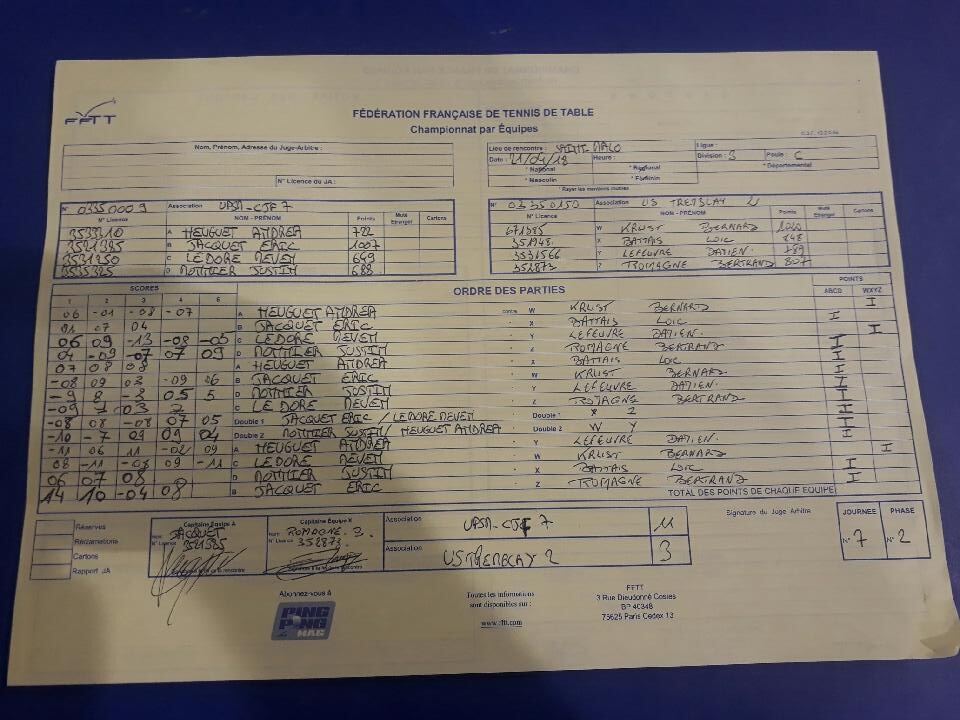 FFTT
FÉDÉRATION FRANÇAISE DE TENNIS DE TABLE
Championnat par Équipes
Nom, Prénom, Adresse du Juge-Arbitre :
N° Licence du JA :
Lieu de rencontre : SAINT-MALO Ligue :
Date : 21/04/18 Heure : Division : 3 Poule : C
* National * Régional * Départemental
* Masculin * Féminin
* Rayer les mentions inutiles
N° 03350009 Association UPSM-CJF 7
N° Licence NOM - PRÉNOM Points Muté Etranger Cartons
3533210 A HEUGUET ANDREA 722
3521385 B JACQUET ERIC 1007
3531250 C LE DORE NEVEN 649
3535325 D NOTTIER JUSTIN 688
N° 03350150 Association US TREMBLAY 2
N° Licence NOM - PRÉNOM Points Muté Etranger Cartons
671385 W KRUST BERNARD
351948 X BATTAIS LOIC 848
3531566 Y LEFEUVRE DATIEN 789
352873 Z ROMAGNE BERTRAND 807
SCORES ORDRE DES PARTIES POINTS
1 2 3 4 5 ABCD WXYZ
06 -01 -08 -07 A HEUGUET ANDREA contre W KRUST BERNARD I
01 07 04 B JACQUET ERIC X BATTAIS LOIC I
06 09 -13 -08 -05 C LE DORE NEVEN Y LEFEUVRE DATIEN I
04 -09 -07 07 09 D NOTTIER JUSTIN Z ROMAGNE BERTRAND I
07 08 08 A HEUGUET ANDREA X BATTAIS LOIC I
-08 09 03 -09 06 B JACQUET ERIC W KRUST BERNARD I
-9 8 -3 05 5 D NOTTIER JUSTIN Y LEFEUVRE DATIEN I
-09 7 03 7 C LE DORE NEVEN Z ROMAGNE BERTRAND I
-08 08 -08 07 05 Double 1 JACQUET ERIC / LE DORE NEVEN Double 1 X Z I
-10 -7 09 09 04 Double 2 NOTTIER JUSTIN / HEUGUET ANDREA Double 2 W Y I
-11 06 11 -02 09 A HEUGUET ANDREA Y LEFEUVRE DATIEN I
08 -11 -08 09 -11 C LE DORE NEVEN W KRUST BERNARD I
06 07 08 D NOTTIER JUSTIN X BATTAIS LOIC I
14 10 -04 08 B JACQUET ERIC Z ROMAGNE BERTRAND I
TOTAL DES POINTS DE CHAQUE EQUIPE
Réserves
Réclamations
Cartons
Rapport JA
Capitaine Équipe A
Nom JACQUET
N° Licence 3521385
Capitaine Équipe X
Nom ROMAGNE B.
N° Licence 352873
Association UPSM-CJF 7 11
Association US TREMBLAY 2 3
Signature du Juge Arbitre
JOURNEE PHASE
N° 7 N° 2
Abonnez-vous à
PING PONG MAG
Toutes les informations
sont disponibles sur :
www.fftt.com
FFTT
3 Rue Dieudonné Costes
BP 40348
75625 Paris Cedex 13